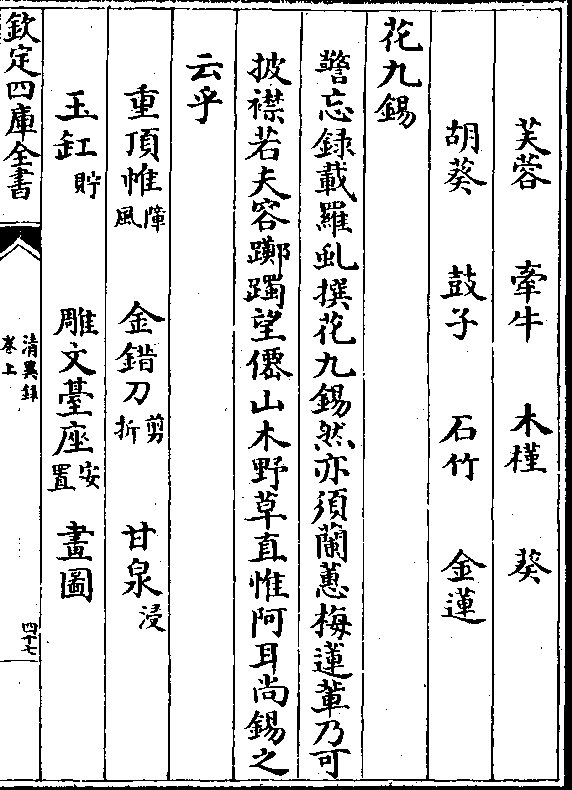 芙蓉 牽牛 木槿 葵
胡葵 鼓子 石竹 金蓮
花九錫
警忘録載羅虬撰花九錫然亦須蘭蕙梅蓮軰乃可
披襟若夫容躑躅望僊山木野草直惟阿耳尚錫之
云乎
重頂帷障風 金錯刀剪折 甘泉浸
玉缸貯 雕文臺座安置 畫圖
欽定四庫全書
清異録
卷上
四十七